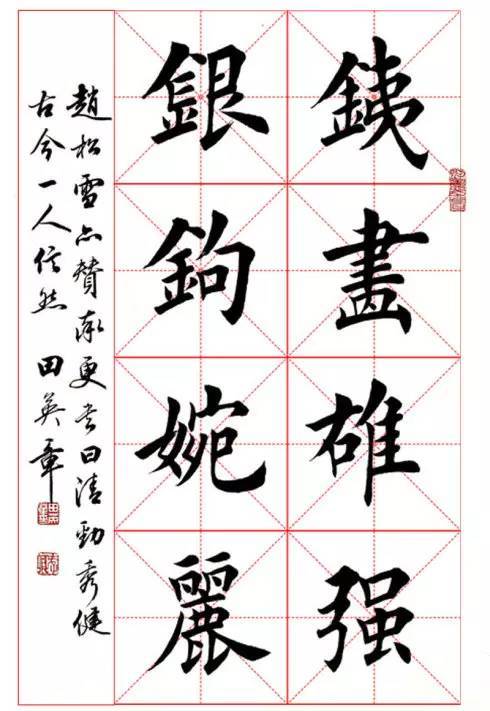 銕畫雄强
銀鉤婉麗
趙松雪亦贊率更書曰清勁秀健
古今一人信然 田英章